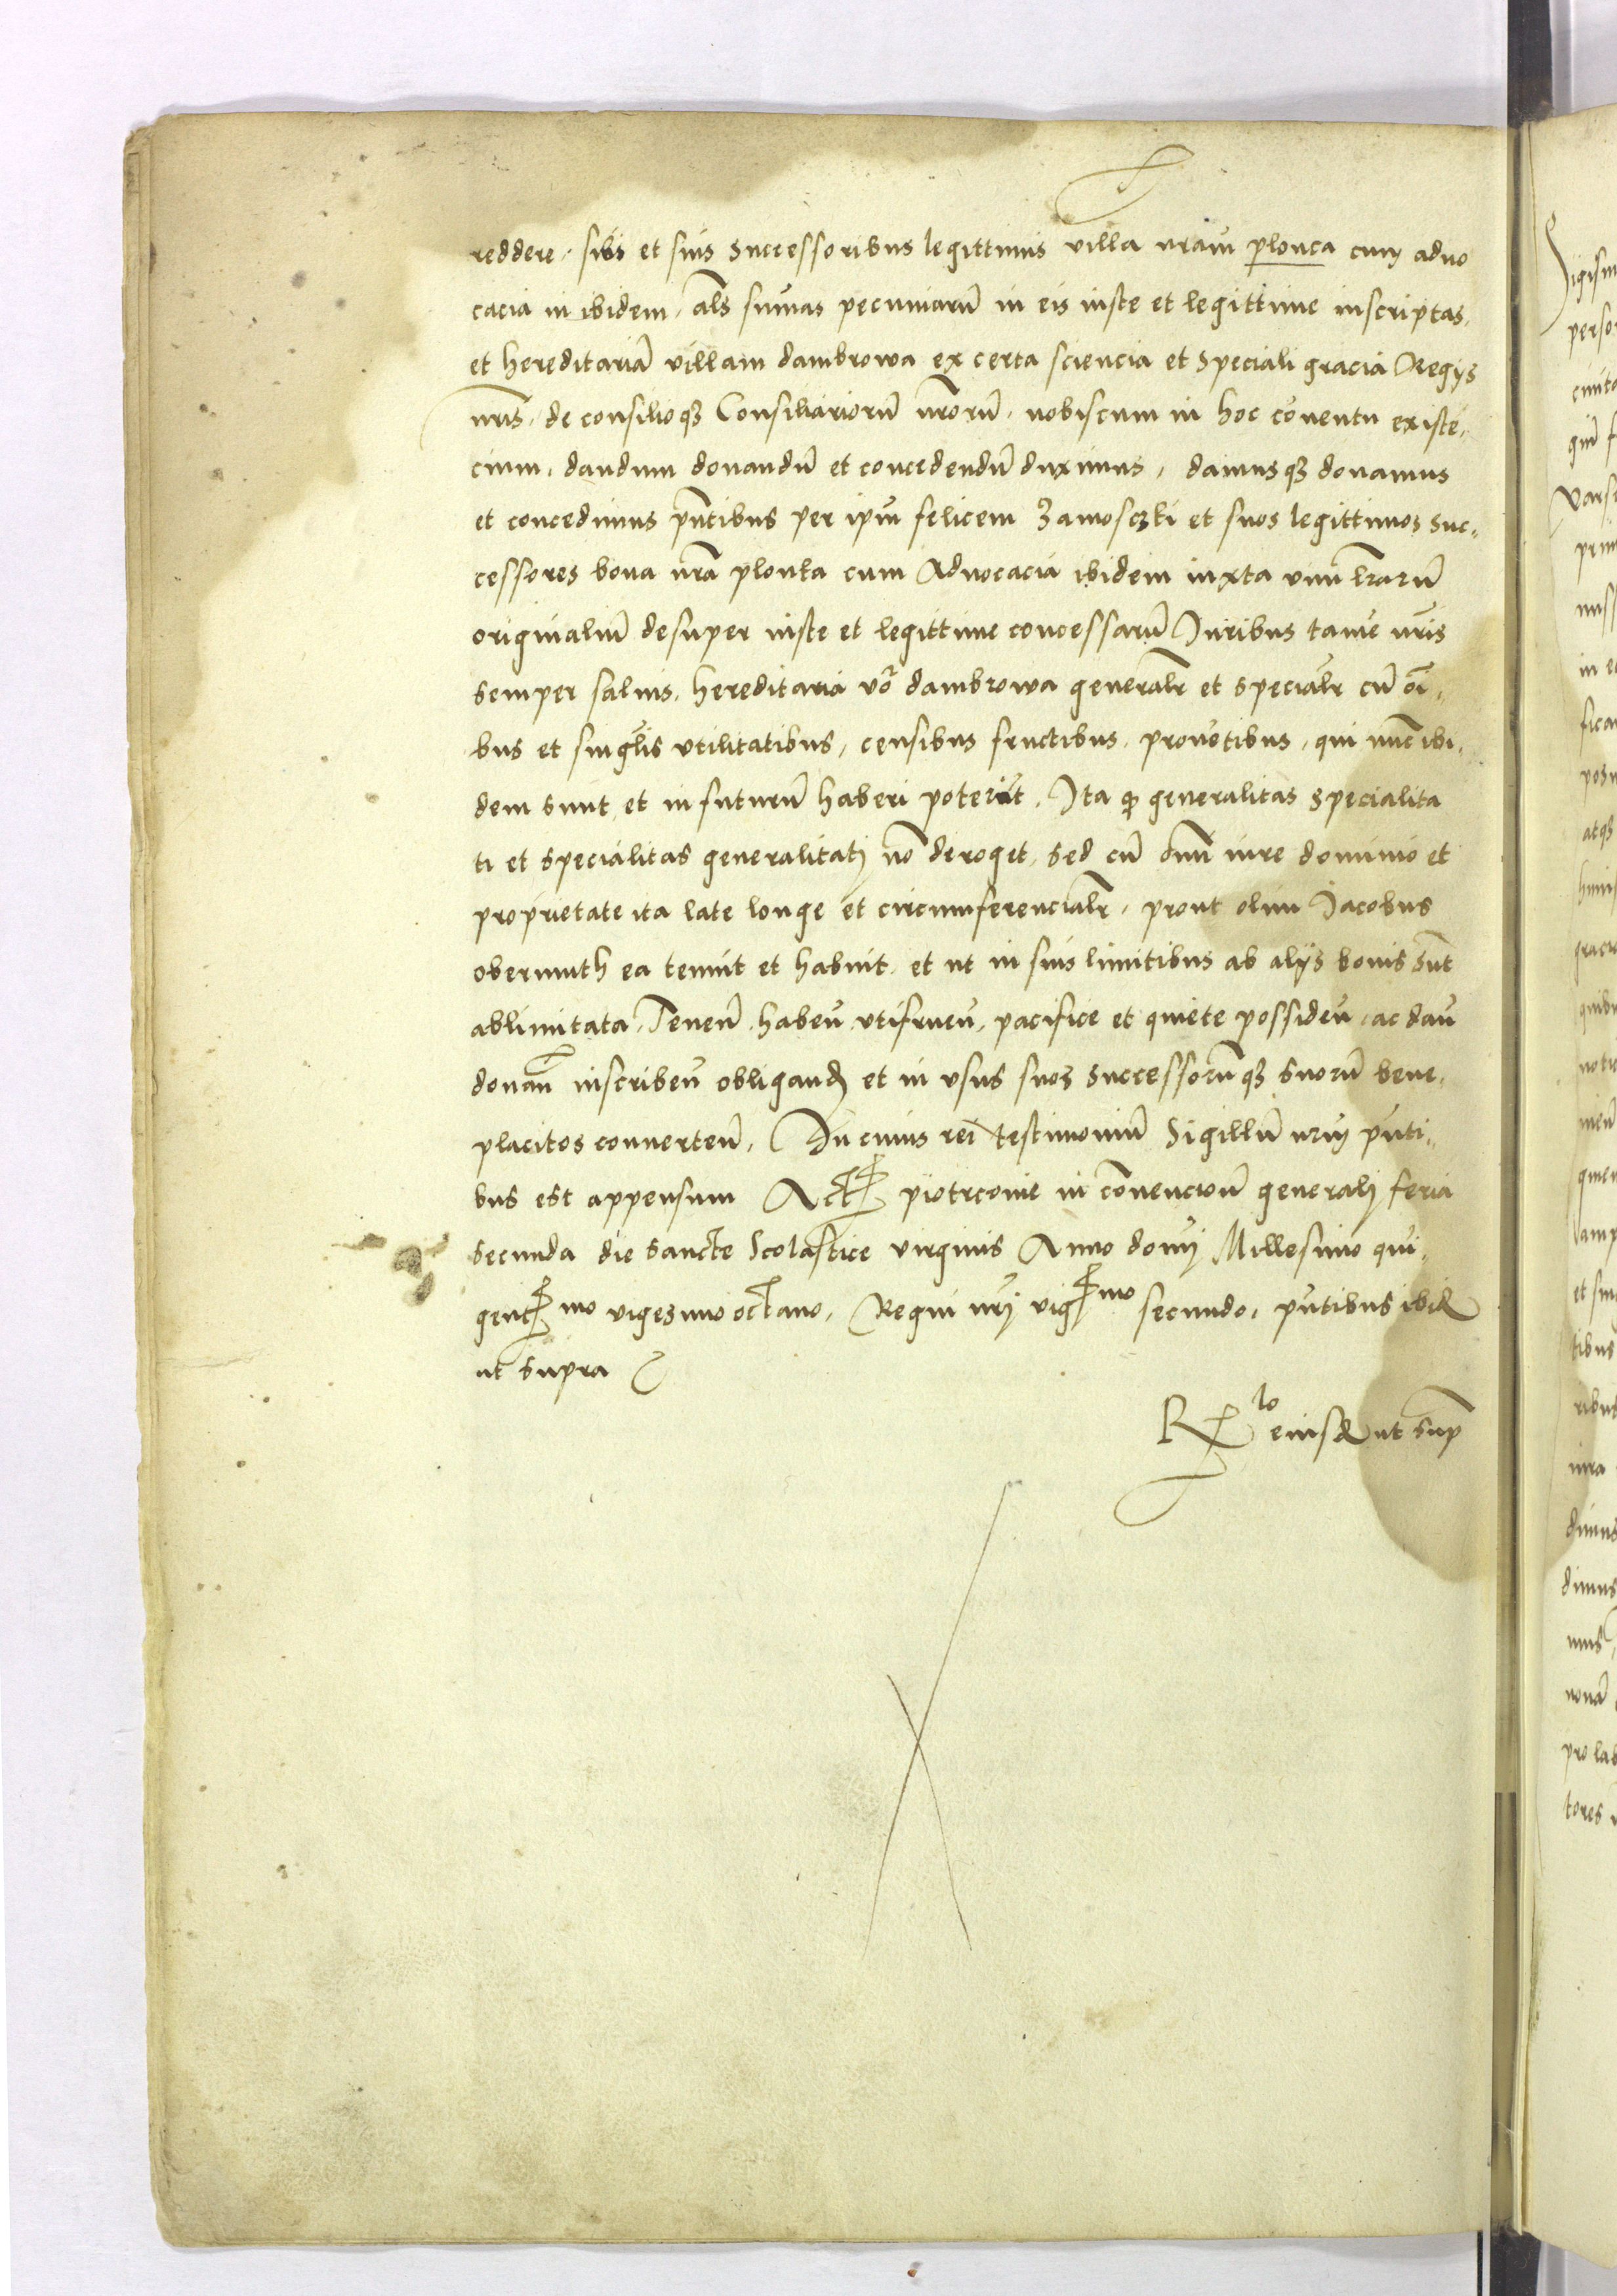 reddere. sibi et suis successoribus legittimis villa nram plonca cum aduo
cacia in ibidem. als sumas pecuniarū in eis iuste et legittime inscriptas.
et hereditariā villam dambrowa ex certa sciencia et speciali gracia Regijs
nris. de consilioqȝ Consiliariorū nrorū. nobiscum in hoc cōuentu existē,
cium. dandum donandū et concedendū duximus. damusqȝ donamus
et concedimus pntibus per ipm felicem Zamosczki et suos legittimos suc,
cessores bona nra plonka cum Aduocacia ibidem iuxta vim lrarū
originaliū desuper iuste et legittime concessarū Juribus tamē nris
semper saluis. hereditaria vo dambrowa generalr et specialr cū oi,
bus et singlis vtilitatibus, censibus fructibus, prouētibus, qui nūc ibi,
dem sunt et in futurū haberi poterūt. Ita qp generalitas specialita
ti et specialitas generalitatj nō deroget, sed cū omi iure dominio et
proprietate ita late longe et circumferencialr, prout olim Jacobus
obermuth ea tenuit et habuit. et ut in suis limitibus ab alijs bonis sūt
ablimitata. Tenen̄ haben̄ vtifruen̄, pacifice et quiete possiden̄ ac dan̄
donan̄ inscriben̄ obligand et in vsus suos successorūqȝ suorū bene,
placitos conuerten̄. In cuius rei testimoniū Sigillū nrm pnti,
bus est appensum Act piotrcouie in conuencion̄ generalj feria
secunda die sancte Scolastice virginis Anno domj Millesimo qui,
gentmo vigesimo octauo. Regni nrj vigmo secundo. pntibus ibid
ut supra
R lo eiusd ut sup